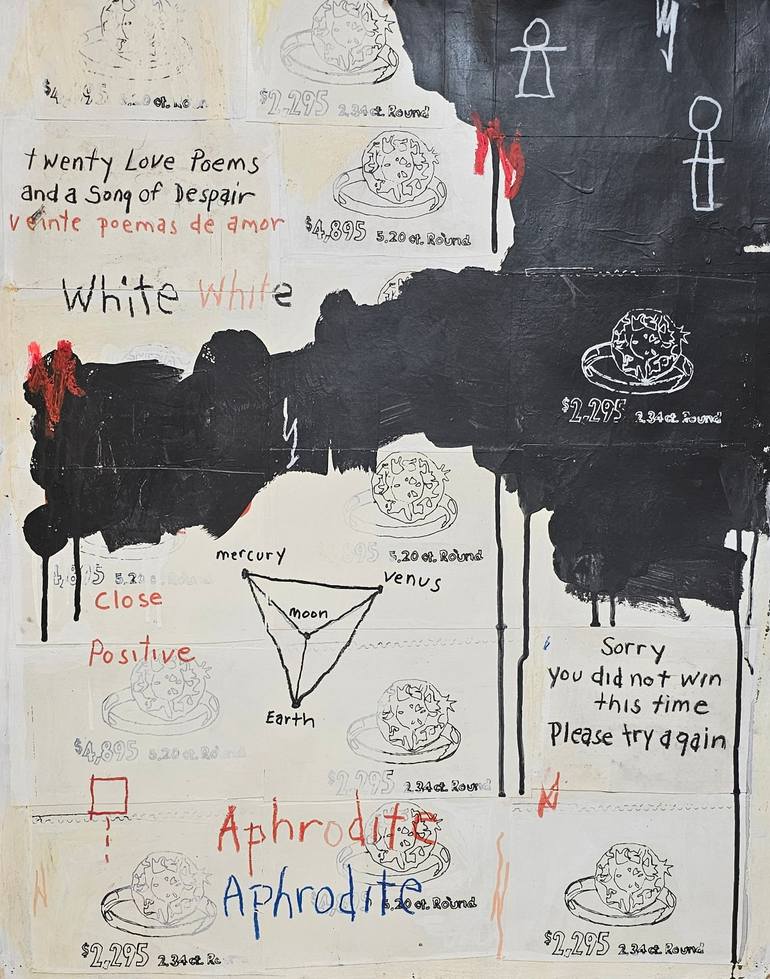 $2,295 2.34 ct. Round
twenty Love Poems
and a Song of Despair
veinte poemas de amor
$4,895 5.20 ct. Round
White White
$2,295 2.34 ct. Round
5.20 ct. Round
mercury
venus
moon
Earth
Close
Positive
Sorry
you did not win
this time
Please try again
$4,895 5.20 ct. Round
$2,295 2.34 ct. Round
Aphrodite
Aphrodite
5.20 ct. Round
$2,295 2.34 ct.
$2,295 2.34 ct. Round